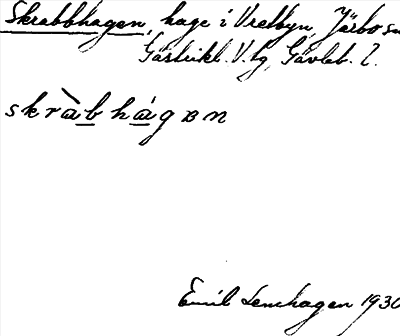 Skrabbhagen, hage i Vretbyn, Järbo sn
Gästrikl. V. tg, Gävleb. l.
skràb hágɐn
Emil Lenhagen 1930